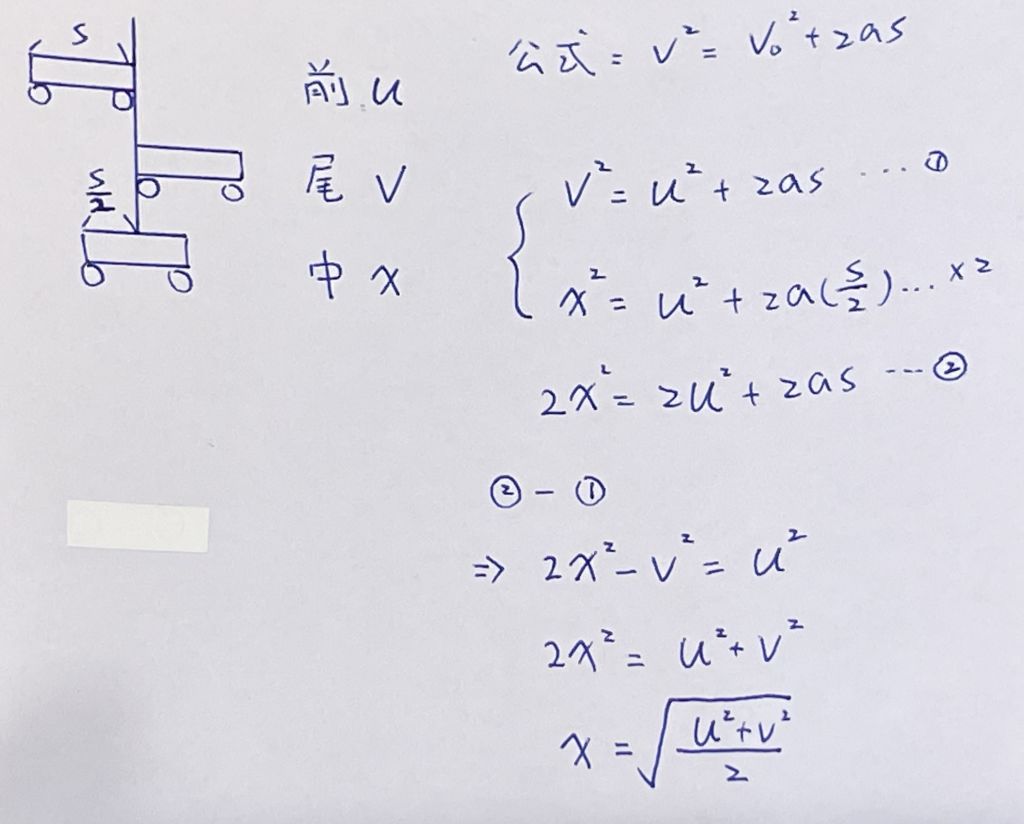 S
S/2
前 u
尾 v
中 x
公式 = v² = v₀² + 2as
v² = u² + 2as ... ①
x² = u² + 2a(s/2) ... x2
2x² = 2u² + 2as ... ②
② - ①
⇒ 2x² - v² = u²
2x² = u² + v²
x = √((u²+v²)/2)